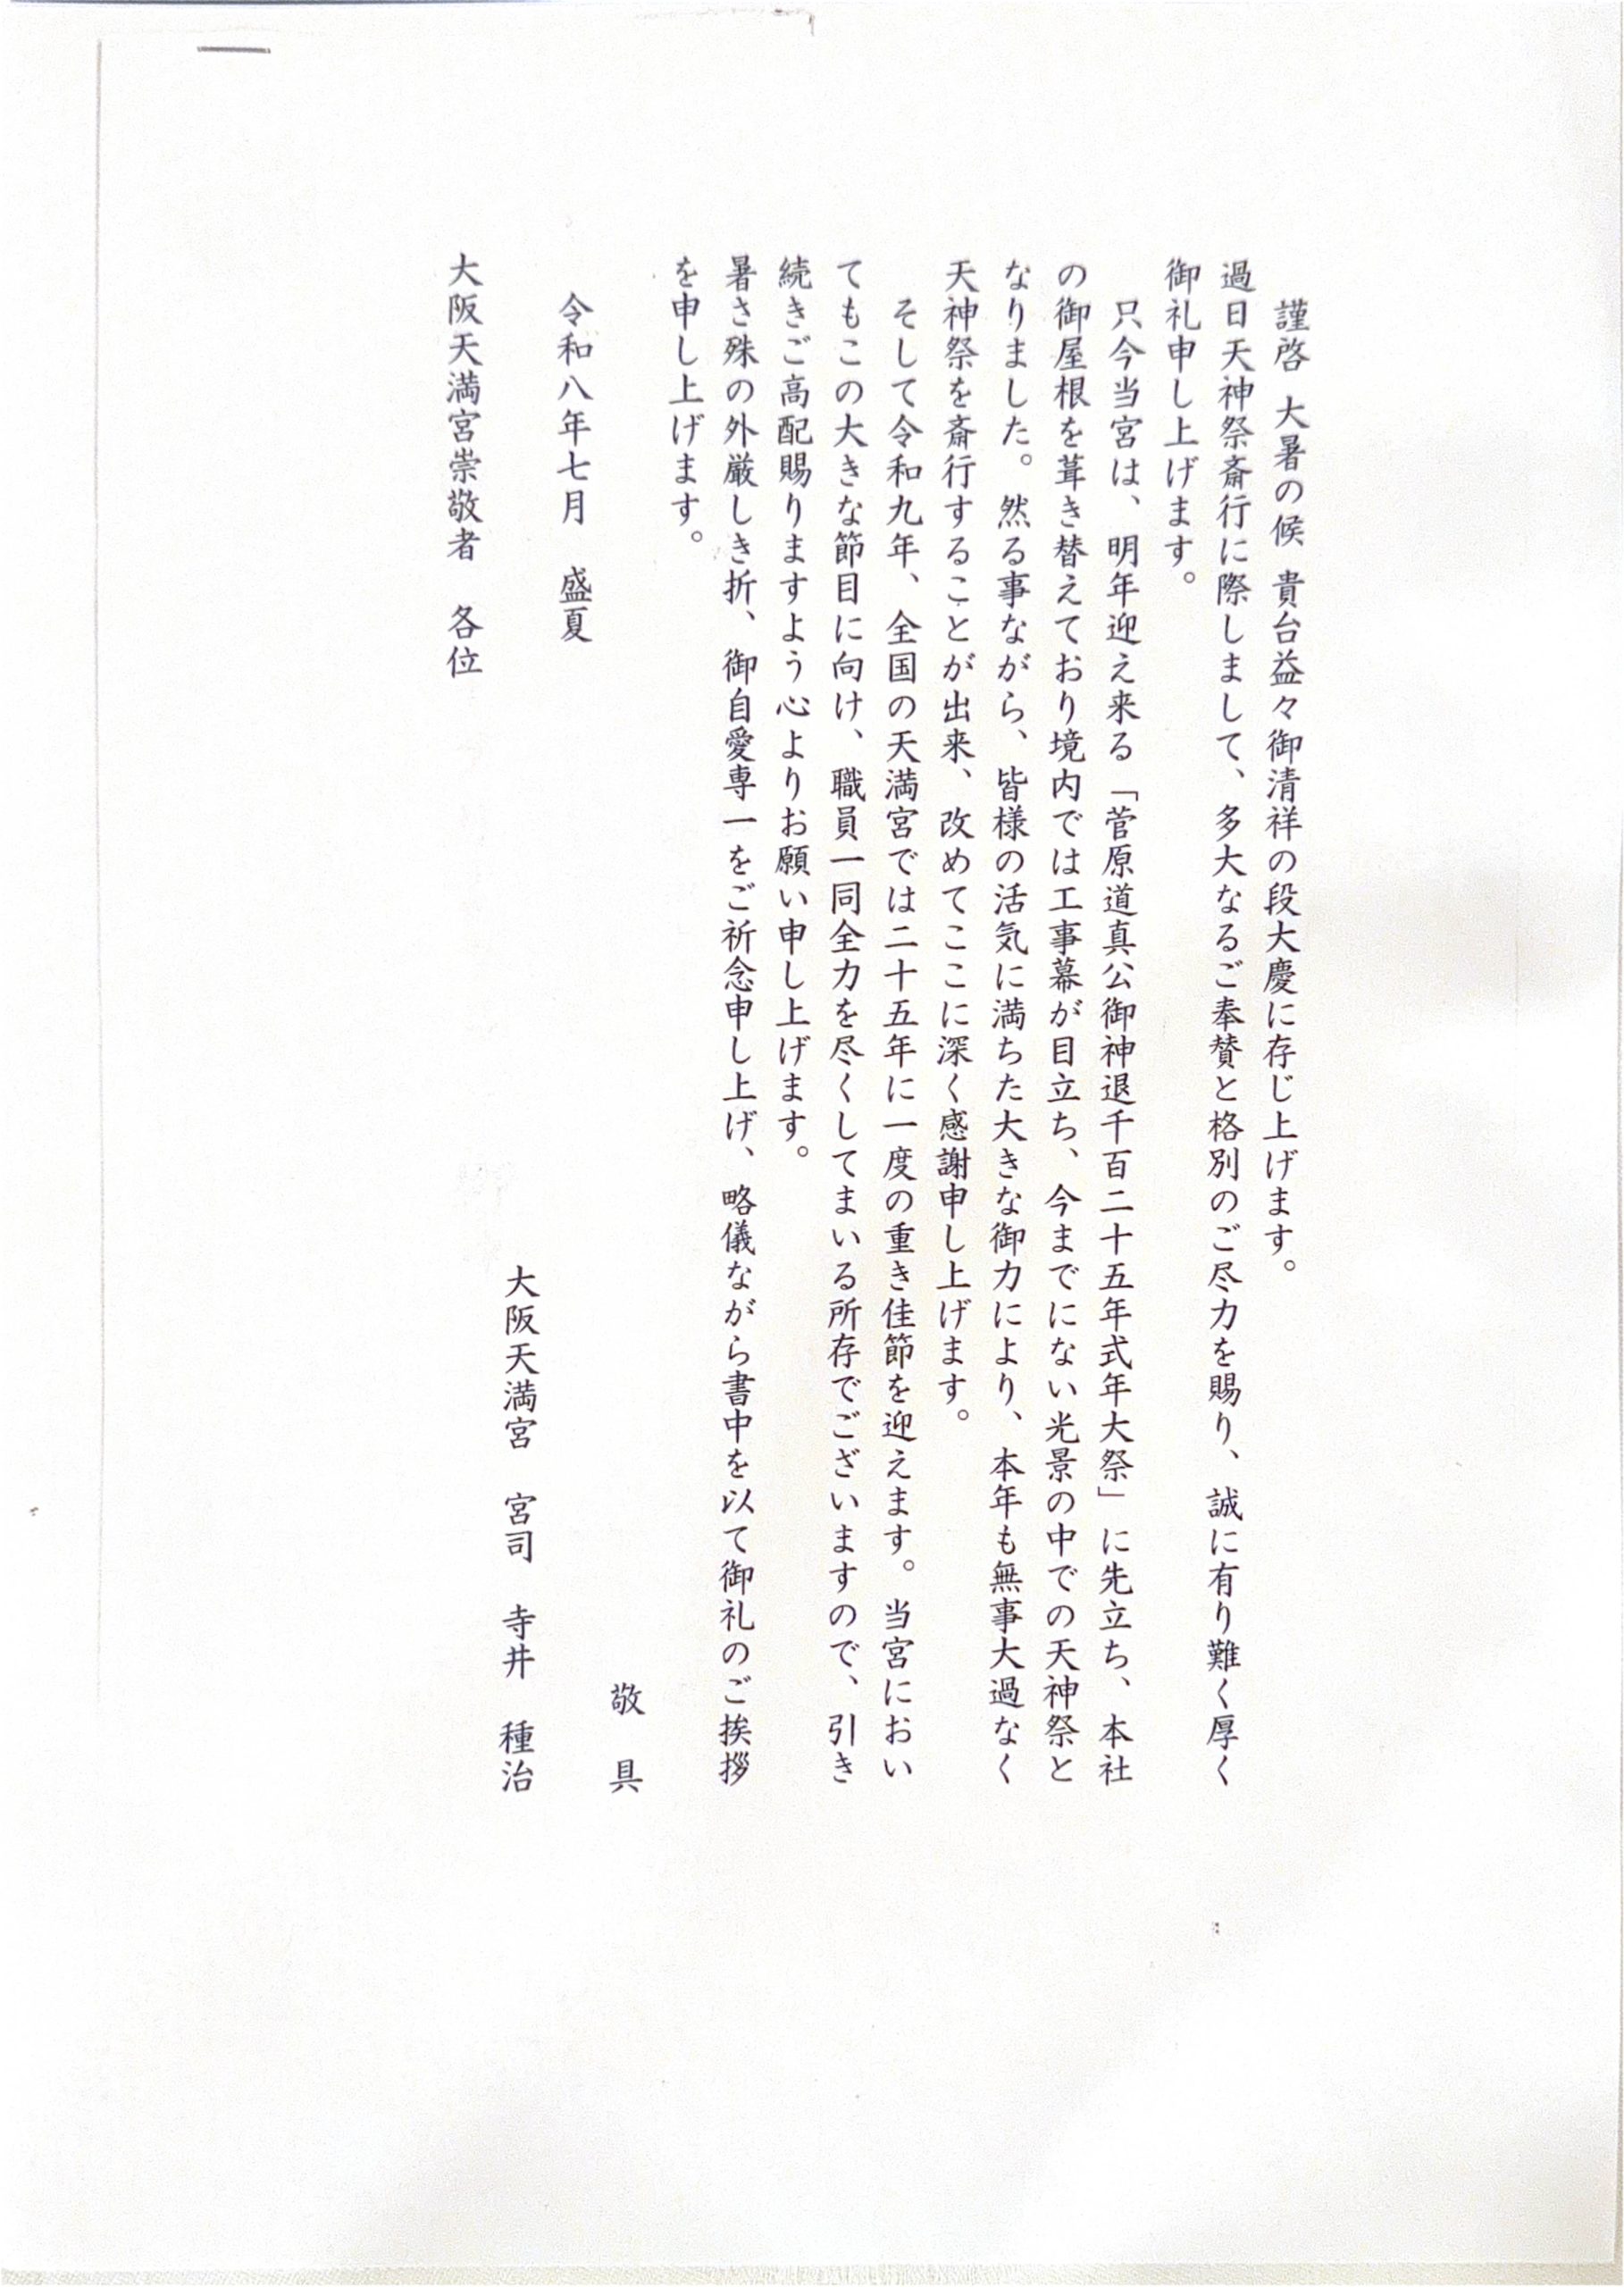 謹啓 大暑の候 貴台益々御清祥の段大慶に存じ上げます。
過日天神祭斎行に際しまして、多大なるご奉賛と格別のご尽力を賜り、誠に有り難く厚く
御礼申し上げます。
只今当宮は、明年迎え来る「菅原道真公御神退千百二十五年式年大祭」に先立ち、本社
の御屋根を葺き替えており境内では工事幕が目立ち、今までにない光景の中での天神祭と
なりました。然る事ながら、皆様の活気に満ちた大きな御力により、本年も無事大過なく
天神祭を斎行することが出来、改めてここに深く感謝申し上げます。
そして令和九年、全国の天満宮では二十五年に一度の重き佳節を迎えます。当宮におい
てもこの大きな節目に向け、職員一同全力を尽くしてまいる所存でございますので、引き
続きご高配賜りますよう心よりお願い申し上げます。
暑さ殊の外厳しき折、御自愛専一をご祈念申し上げ、略儀ながら書中を以て御礼のご挨拶
を申し上げます。
敬 具
令和八年七月 盛夏
大阪天満宮 宮司 寺井 種治
大阪天満宮崇敬者 各位